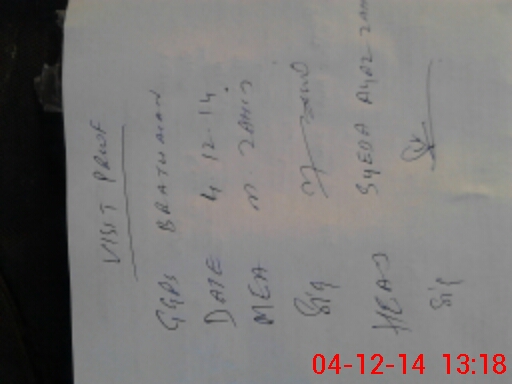 VISIT PROOF
GGPS BRATHMAN
DATE 4.12.14
MEA M. ZAHID
Sig
HEAD SYEDA AYAZ
Sig
04-12-14 13:18